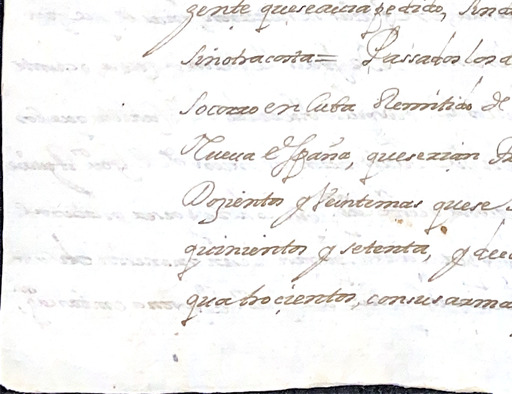 gente queseauia pedido, sina
sinotracosta= Passados los
socorro en Cuba Remitido de
Nueua España, queserian
Dozientos y Veintemas quese
quinientos y setenta, y de
quatrocientos, consusarma